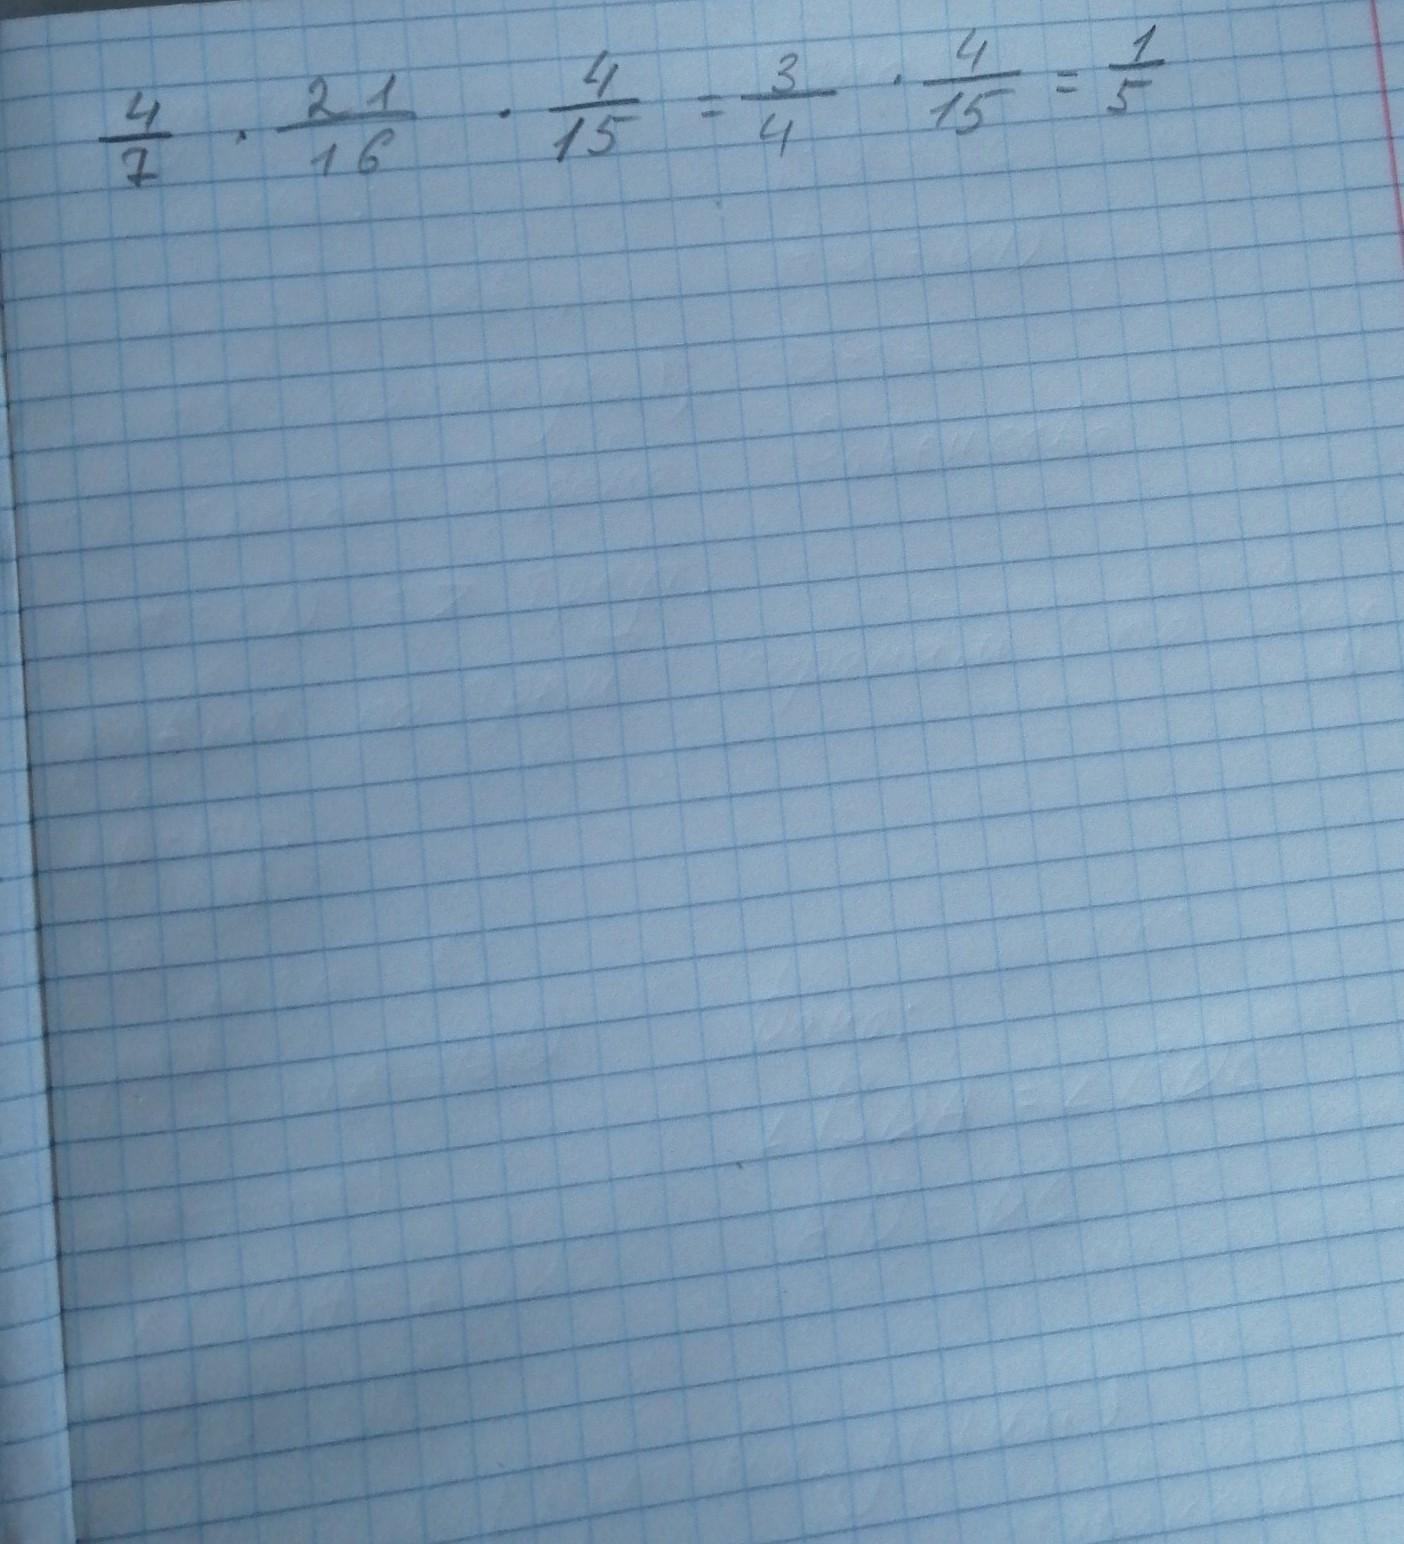 4/7 · 21/16 · 4/15 = 3/4 · 4/15 = 1/5